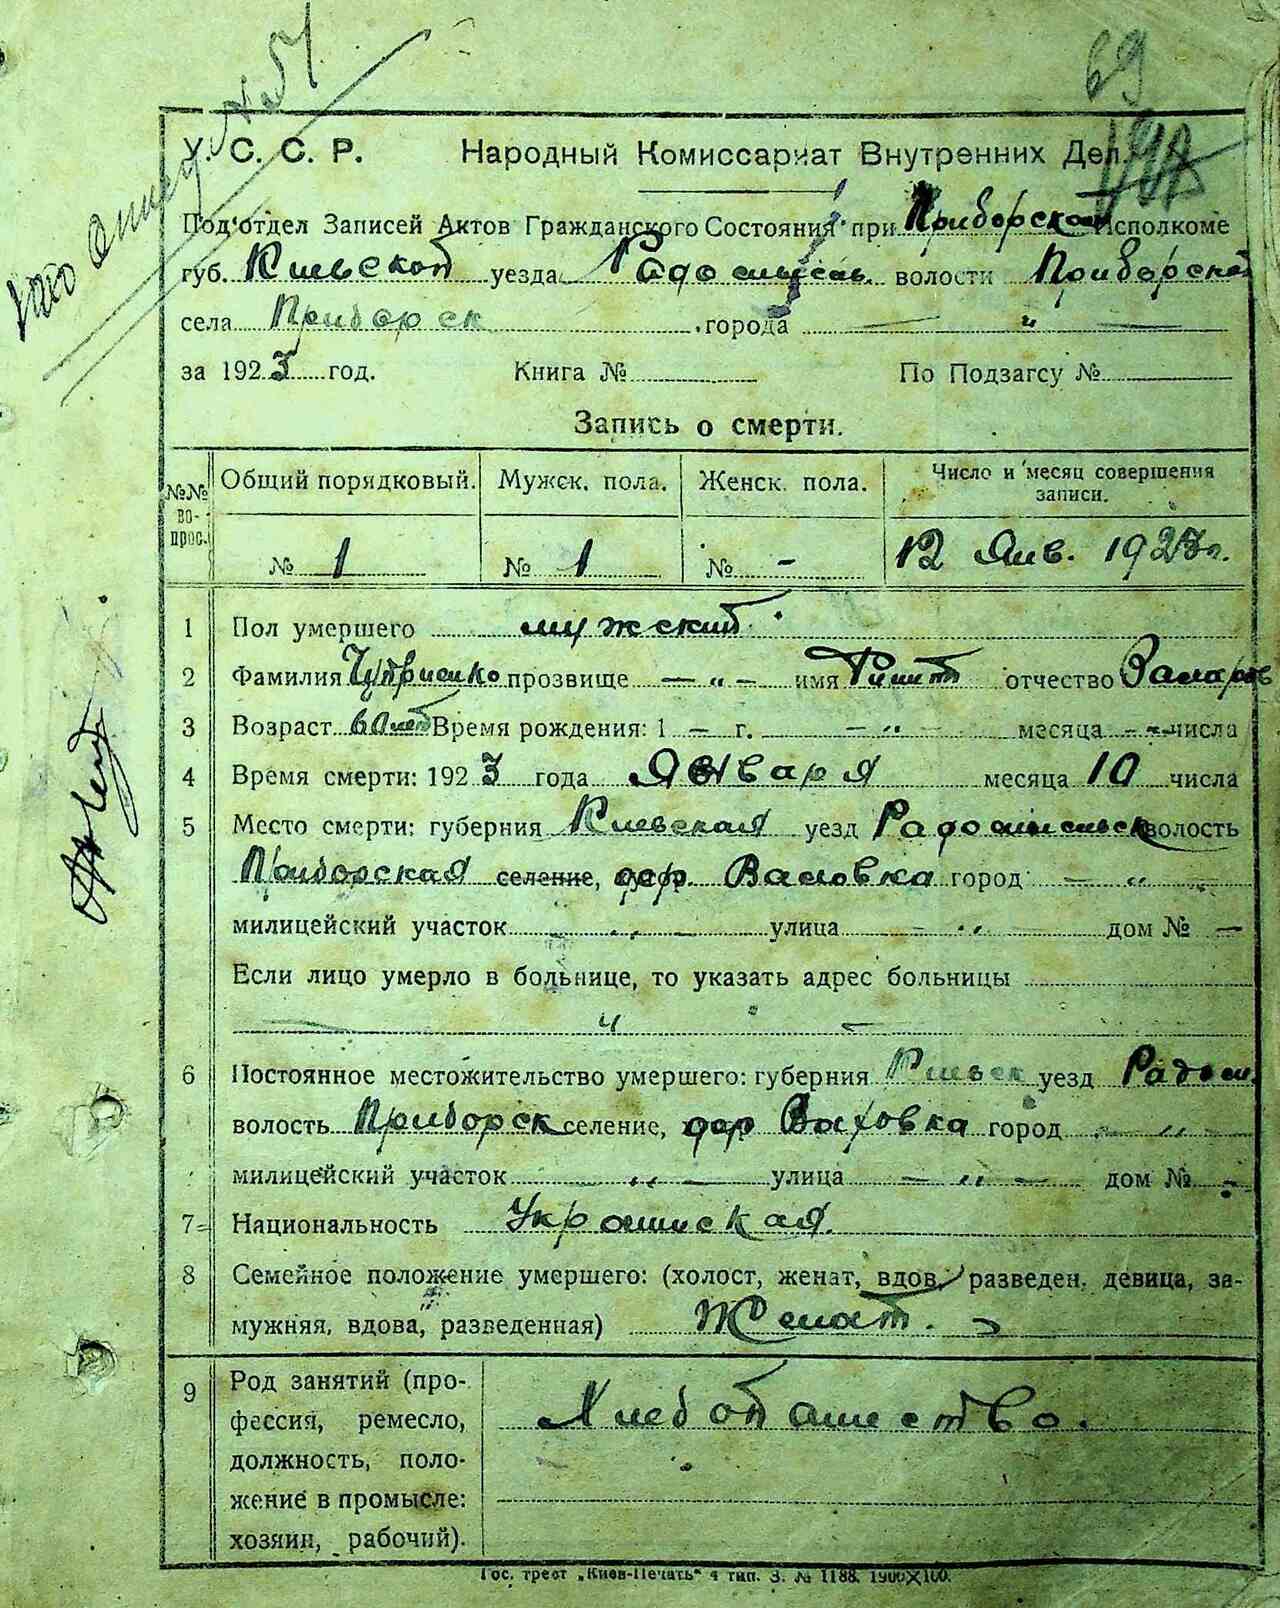 69
У. С. С. Р. Народный Комиссариат Внутренних Дел.
Под‘отдел Записей Актов Гражданского Состояния при Приборском Исполкоме
губ. Киевской уезда волости Приборской
села Приборск города — " —
за 1923 год. Книга № По Подзагсу №
Запись о смерти.
№№ вопрос. Общий порядковый. Мужск. пола. Женск. пола. Число и месяц совершения записи.
№ 1 № 1 № - 12 Янв. 1923 г.
1 Пол умершего мужской
2 Фамилия прозвище — " — имя отчество
3 Возраст 60 лет Время рождения: 1 — г. — " — месяца — " — числа
4 Время смерти: 1923 года Января месяца 10 числа
5 Место смерти: губерния Киевская уезд волость
Приборская селение, дер. город — " —
милицейский участок — " — улица — " — дом № —
Если лицо умерло в больнице, то указать адрес больницы
— " —
6 Постоянное местожительство умершего: губерния Киевск уезд Радом.
волость Приборск селение, дер город — " —
милицейский участок — " — улица — " — дом № -
7 Национальность Украинская
8 Семейное положение умершего: (холост, женат, вдов, разведен, девица, за-
мужняя, вдова, разведенная) Женат.
9 Род занятий (про-
фессия, ремесло,
должность, поло-
жение в промысле:
хозяин, рабочий).
Хлебопашество.
Гос. трест „Киев-Печать“ 4 тип. З. № 1188. 1900×100.